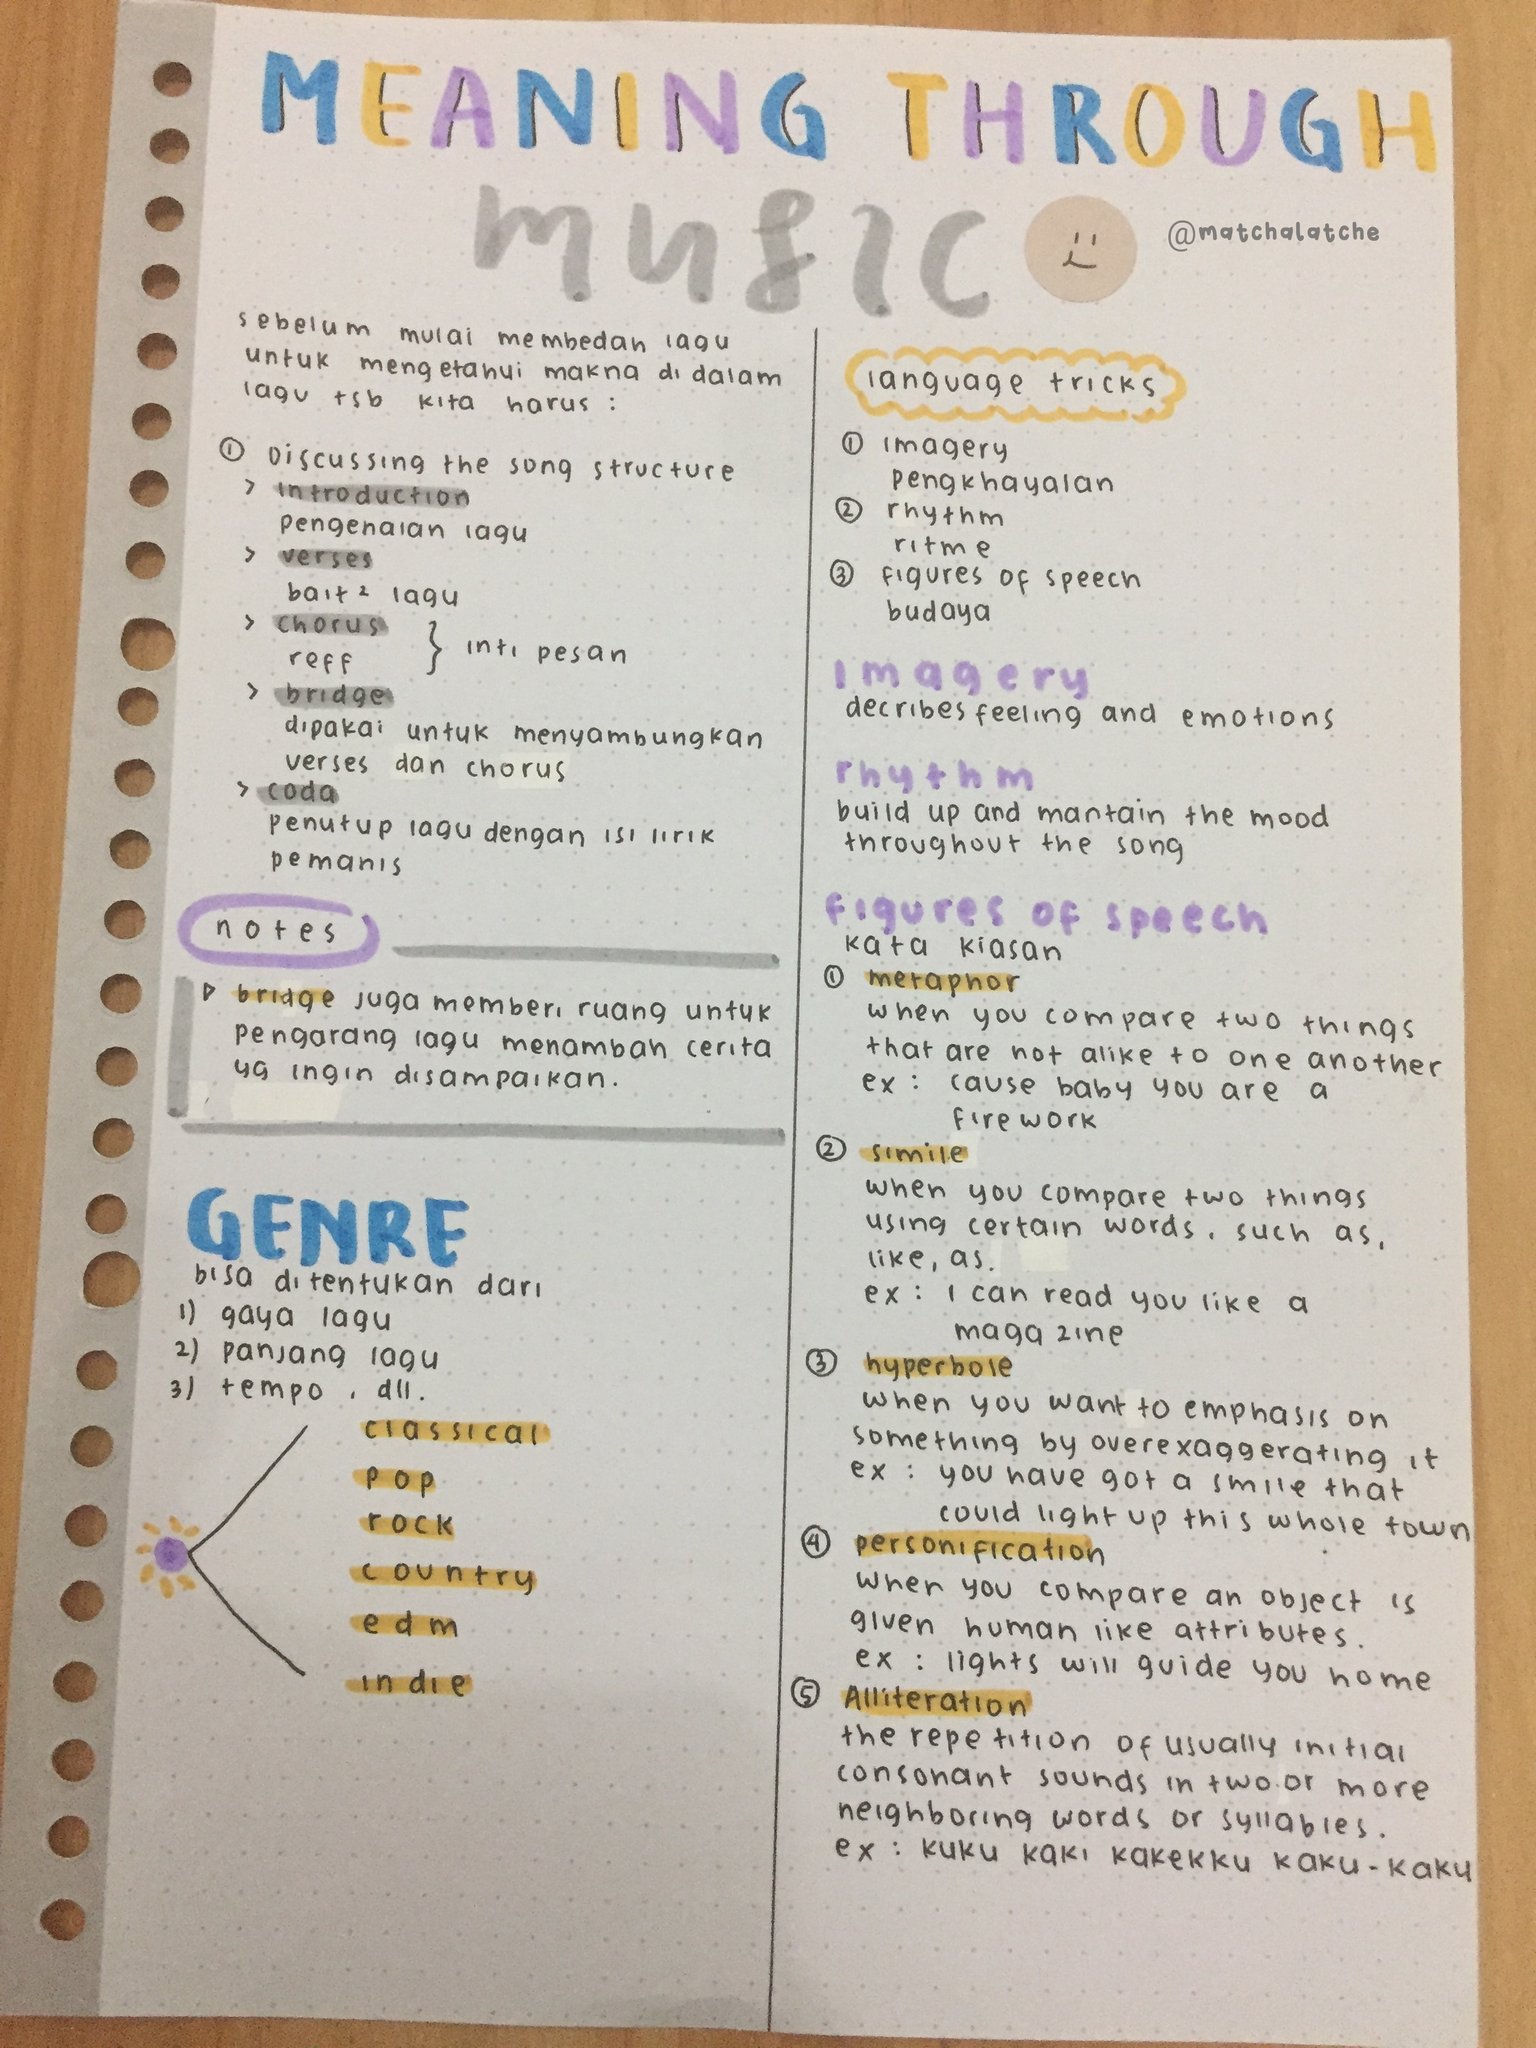 MEANING THROUGH
music
@matchalatche
sebelum mulai membedah lagu
untuk mengetahui makna di dalam
lagu tsb kita harus :
① Discussing the song structure
> introduction
pengenalan lagu
> verses
bait² lagu
> chorus
reff } inti pesan
> bridge
dipakai untuk menyambungkan
verses dan chorus
> coda
penutup lagu dengan isi lirik
pemanis
notes
▷ bridge juga memberi ruang untuk
pengarang lagu menambah cerita
yg ingin disampaikan.
GENRE
bisa ditentukan dari
1) gaya lagu
2) panjang lagu
3) tempo, dll.
classical
pop
rock
country
edm
indie
language tricks
① imagery
pengkhayalan
② rhythm
ritme
③ figures of speech
budaya
imagery
decribes feeling and emotions
rhythm
build up and mantain the mood
throughout the song
figures of speech
kata kiasan
① metaphor
when you compare two things
that are not alike to one another
ex : cause baby you are a
firework
② simile
when you compare two things
using certain words, such as,
like, as.
ex : I can read you like a
magazine
③ hyperbole
when you want to emphasis on
something by overexaggerating it
ex : you have got a smile that
could light up this whole town
④ personification
when you compare an object is
given human like attributes.
ex : lights will guide you home
⑤ Alliteration
the repetition of usually initial
consonant sounds in two or more
neighboring words or syllables.
ex : kuku kaki kakekku kaku-kaku